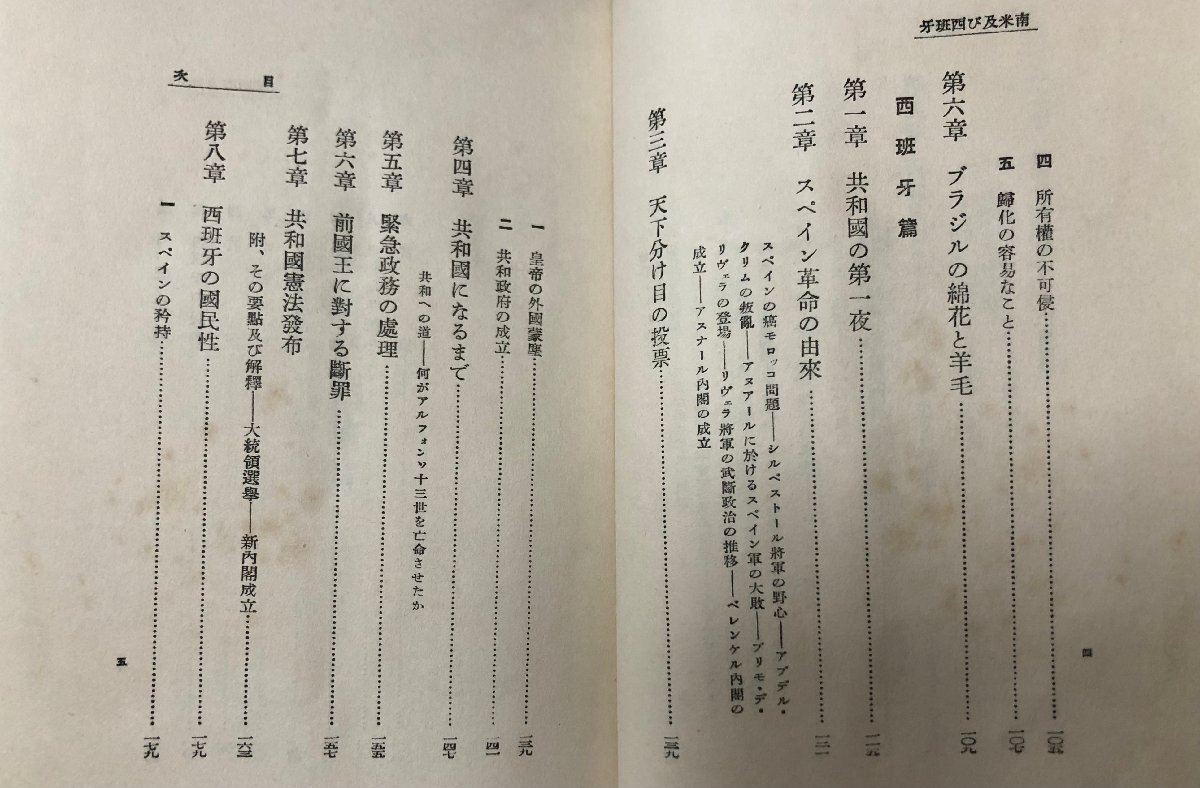 南米及び西班牙
四 所有權の不可侵…………一〇五
五 歸化の容易なこと…………一〇七
第六章 ブラジルの綿花と羊毛…………一〇九
西班牙篇
第一章 共和國の第一夜…………一一五
第二章 スペイン革命の由來…………一二一
スペインの癌モロッコ問題――シルベストール將軍の野心――アブデル・
クリムの叛亂――アヌアールに於けるスペイン軍の大敗――プリモ・デ・
リヴェラの登場――リヴェラ將軍の武斷政治の推移――ベレンゲル內閣の
成立――アスナール內閣の成立
第三章 天下分け目の投票…………一三九
四
目次
一 皇帝の外國蒙塵…………一三九
二 共和政府の成立…………一四一
第四章 共和國になるまで…………一四七
共和への道――何がアルフォンソ十三世を亡命させたか
第五章 緊急政務の處理…………一五五
第六章 前國王に對する斷罪…………一五七
第七章 共和國憲法發布
附、その要點及び解釋――大統領選擧――新內閣成立…………一六三
第八章 西班牙の國民性…………一七九
一 スペインの矜持…………一七九
五